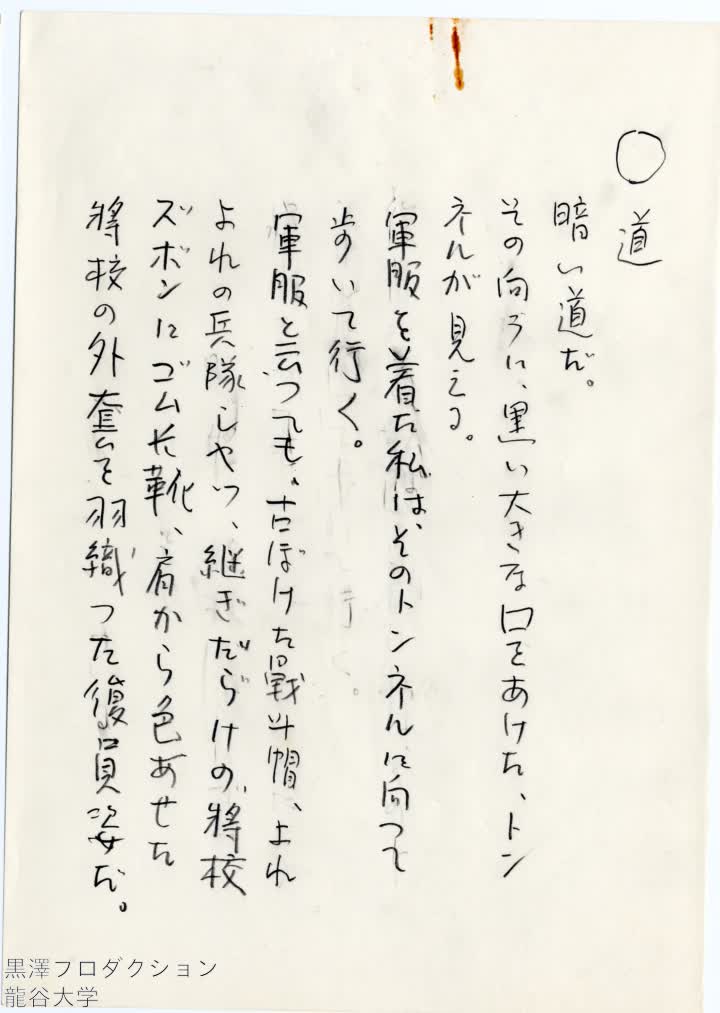 ○ 道
暗い道だ。
その向うに、黒い大きな口をあけた、トン
ネルが見える。
軍服を着た私は、そのトンネルに向つて
歩いて行く。
軍服と云つても、古ぼけた戦斗帽、よれ
よれの兵隊シャツ、継ぎだらけの、將校
ズボンにゴム長靴、肩から色あせた
將校の外套を羽織つた復員姿だ。
黒澤プロダクション
龍谷大学